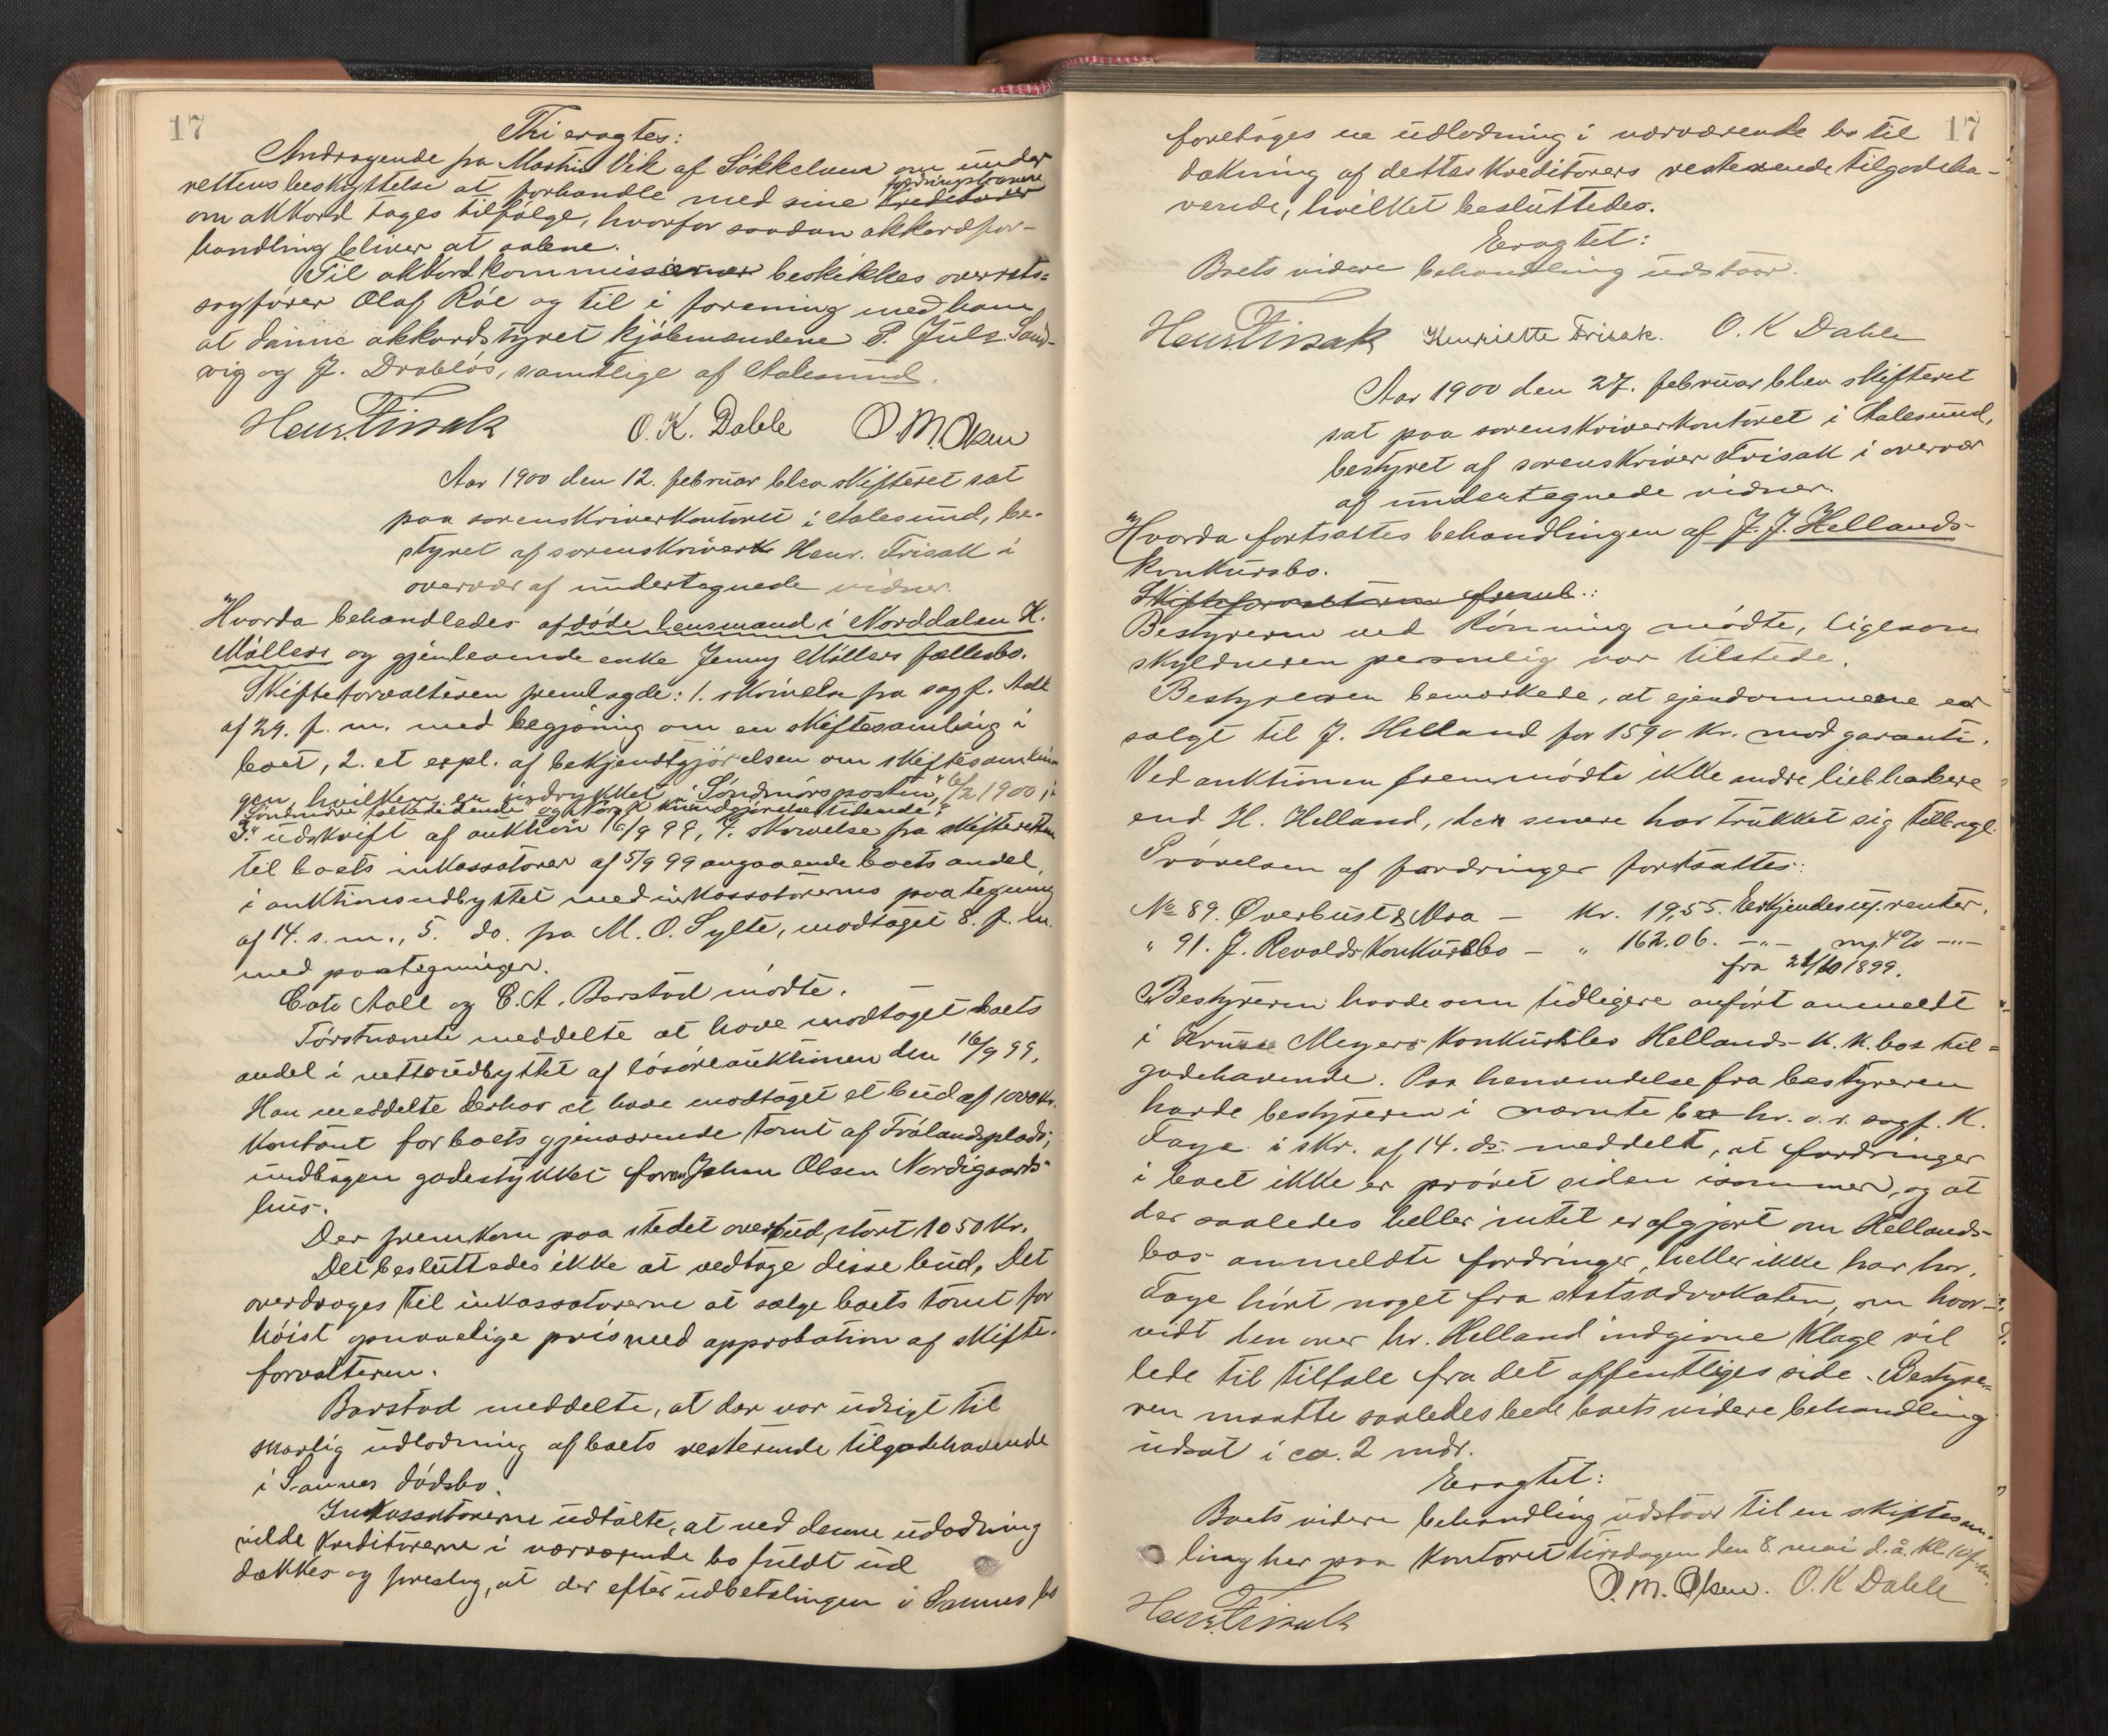 17
Thi eragtes:
Andragende fra Martin Vik af Søkkelven om under
rettens beskyttelse at forhandle med sine kreditorer fordringshavere
om akkord tages tilfølge, hvorfor saadan akkordfor-
handling bliver at aabne.
Til akkordkommissær beskikkes overrets-
sagfører Olaf Røe og til i forening med ham
at danne akkordstyret kjøbmændene P. Juls. Sand-
vig og J. Drabløs, samtlige af Aalesund.
Henr. Frisak O. K. Dahle O. M. Olsen
Aar 1900 den 12. februar blev skifteret sat
paa sorenskriverkontoret i Aalesund, be-
styret af sorenskriver Henr. Frisak i
overvær af undertegnede vidner.
Hvorda behandledes afdøde lensmand i Norddalen K.
Møllers og gjenlevende enke Jenny Møllers fællesbo.
Skifteforvalteren fremlagde: 1. skrivelse fra sagf. Aall
af 29. f. m. med begjæring om en skiftesamling i
boet, 2. et expl. af bekjendtgjørelsen om skiftesamlin
gen, hvilken er indrykket i "Søndmørsposten," 6/2 1900 i
"Søndmøre folketidende" og Norsk kundgjørelsestidende",
3. udskrift af auktion 16/9 99, 4. skrivelse fra skifteretten
til boets inkassatorer af 5/9 99 angaaende boets andel
i auktionsudbyttet med inkassatorernes paategning
af 14. s. m., 5. do. fra M. O. Sylte, modtaget 8. f. m.
med paategninger.
Cato Aall og C. A. Barstad mødte.
Førstnævnte meddelte at have modtaget boets
andel i nettoudbyttet af løsøreauktionen den 16/9 99.
Han meddelte derhos at have modtaget et bud af 1000 kr.
kontant for boets gjenværende tomt af Frølandsplads,
undtagen gadestykket foran Johan Olsen Nordigaards
hus.
Der fremkom paa stedet overbud, stort 1050 kr.
Det besluttedes ikke at vedtage disse bud. Det
overdroges til inkassatorerne at sælge boets tomt for
høist opnaaelige pris med approbation af skifte-
forvalteren.
Barstad meddelte, at der var udsigt til
snarlig udlodning af boets resterende tilgodehavende
i Sannes dødsbo.
Inkassatorerne udtalte, at ved denne udlodning
vilde kreditorerne i nærværende bo fuldt ud
dækkes og foreslog, at der efter udbetalingen i Sannes bo
17
foretages en udlodning i nærværende bo til
dækning af dettes kreditorers resterende tilgodeha-
vende, hvilket besluttedes.
Eragtet:
Boets videre behandling udstaar.
Henr. Frisak Henriette Frisak. O. K Dahle
Aar 1900 den 27. februar blev skifteret
sat paa sorenskriverkontoret i Aalesund,
bestyret af sorenskriver Frisak i overvær
af undertegnede vidner.
Hvorda fortsattes behandlingen af J. J. Hellands
konkursbo.
Skifteforvalteren freml.:
Bestyreren ved Rønning mødte, ligesom
skyldneren personlig var tilstede.
Bestyreren bemærkede, at ejendommene er
solgt til J. Helland for 1590 kr. mod garanti.
Ved auktionen fremmødte ikke andre liebhabere
end H. Helland, der senere har trukket sig tilbage.
Prøvelsen af fordringer fortsattes:
No 89. Øverbust & Moa — kr. 19,55. Erkjendes uf. renter.
" 91. J. Revolds konkursbo — " 162.06. —"— m. 4% —"—
fra 21/10 1899.
Bestyreren havde som tidligere anført anmeldt
i Kruse Meyers konkursbo Hellands k. k. bos til-
godehavende. Paa henvendelse fra bestyreren
havde bestyreren i nævnte bo hr. o. r. sagf. K.
Faye i skr. af 14. ds. meddelt, at fordringer
i boet ikke er prøvet siden isommer, og at
der saaledes heller intet er afgjort om Hellands
bos anmeldte fordringer, heller ikke har hr.
Faye hørt noget fra statsadvokaten, om hvor-
vidt den over hr. Helland indgivne klage vil
lede til tiltale fra det offentliges side. Bestyre-
ren maatte saaledes bede boets videre behandling
udsat i ca. 2 mdr.
Eragtet:
Boets videre behandling udstaar til en skiftesam-
ling her paa kontoret tirsdagen den 8. mai d. å. kl. 10 f. m.
O. M. Olsen. O. K Dahle
Henr. Frisak